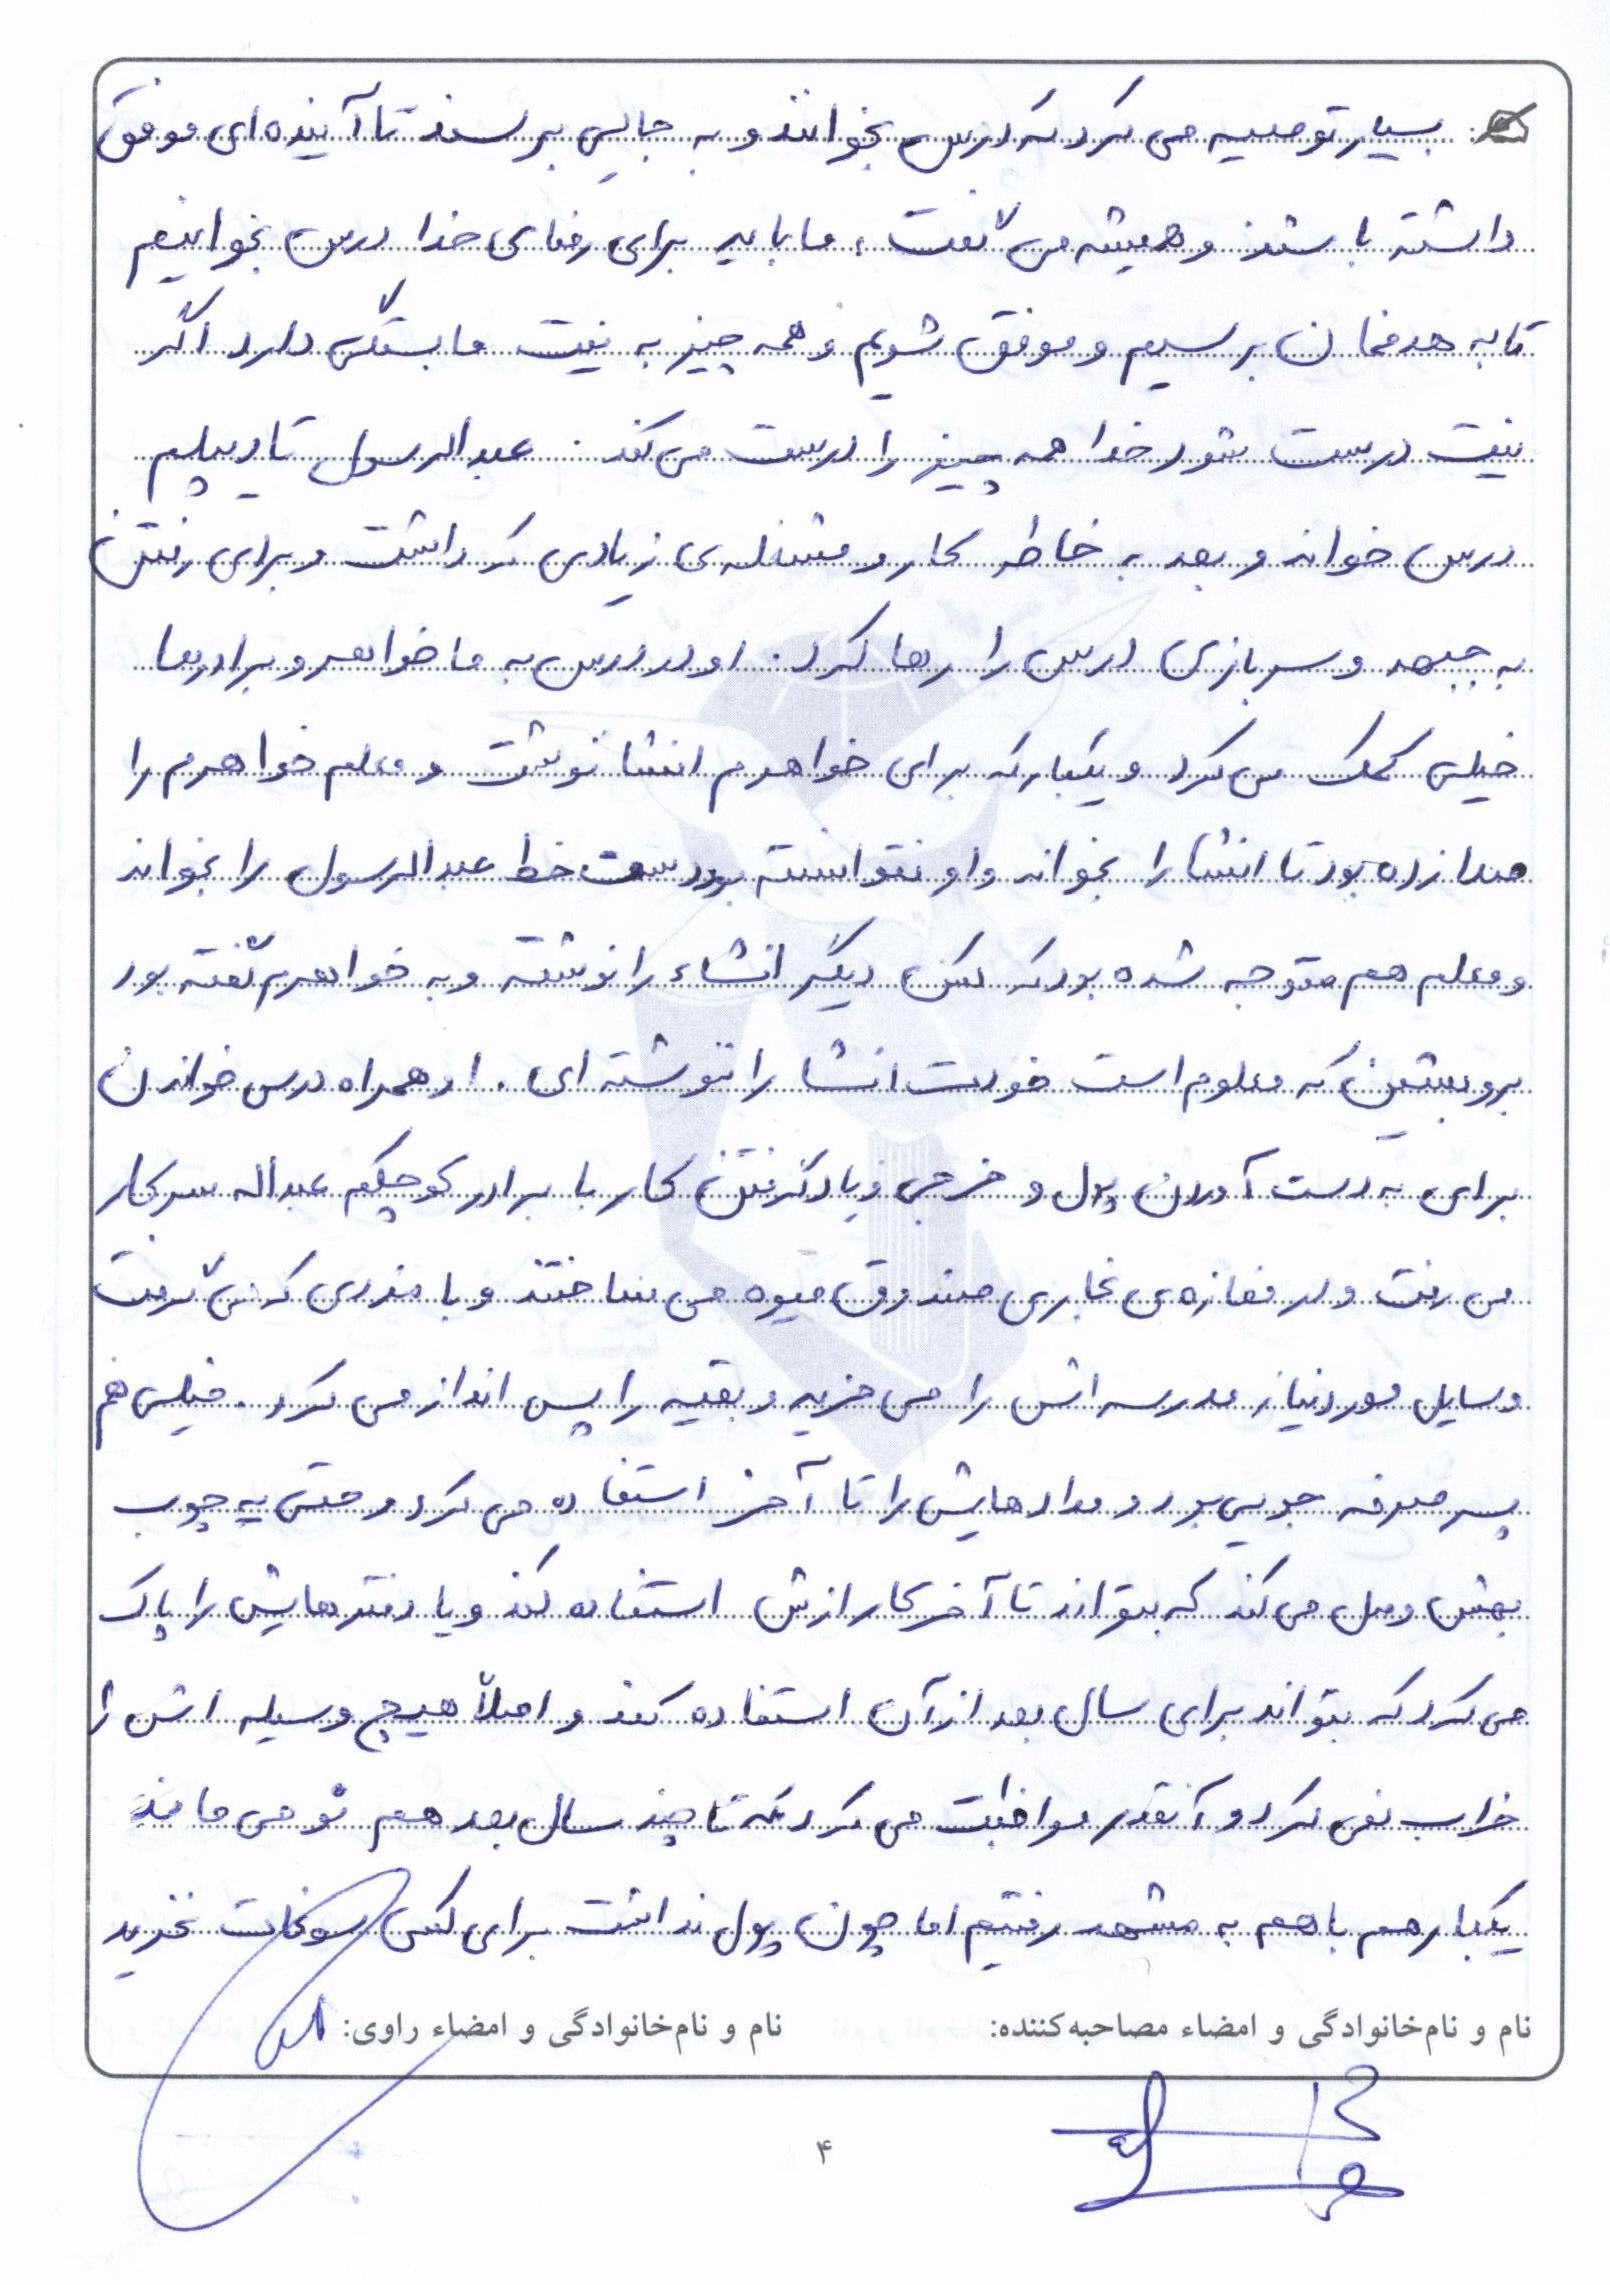 بسیار توصیه می کرد که درس بخوانند و به جایی برسند تا آینده ای موفق
داشته باشند و همیشه می گفت، ما باید برای رضای خدا درس بخوانیم
تا به هدفمان برسیم و موفق شویم و همه چیز به نیت ما بستگی دارد اگر
نیت درست شود خدا همه چیز را درست می کند. عبدالرسول تا دیپلم
درس خواند و بعد به خاطر کار و مشغله ی زیادی که داشت و برای رفتن
به جبهه و سربازی درس را رها کرد. او در درس به ما خواهر و برادرها
خیلی کمک می کرد و یکبار که برای خواهرم انشا نوشت و معلم خواهرم را
صدا زده بود تا انشا را بخواند و او نتوانسته بود دست خط عبدالرسول را بخواند
و معلم هم متوجه شده بود که کس دیگر انشاء را نوشته و به خواهرم گفته بود
برو بشین که معلوم است خودت انشا را ننوشته ای. او همراه درس خواندن
برای به دست آوردن پول و خرجی و یاد گرفتن کار با برادر کوچکم عبداله سر کار
می رفت و در مغازه ی نجاری صندوق میوه می ساختند و با مزدی که می گرفت
وسایل مورد نیاز مدرسه اش را می خرید و بقیه را پس انداز می کرد. خیلی هم
پسر صرفه جویی بود و مدادهایش را تا آخر استفاده می کرد و حتی یه چوب
بهش وصل می کند که بتواند تا آخر کار ازش استفاده کند و یا دفترهایش را پاک
می کرد که بتواند برای سال بعد از آن استفاده کند و اصلاً هیچ وسیله اش را
خراب نمی کرد و آنقدر مواظبت می کرد که تا چند سال بعد هم نو می ماند
یکبار هم با هم به مشهد رفتیم اما چون پول نداشت برای کسی سوغات نخرید
نام و نام‌خانوادگی و امضاء مصاحبه‌کننده: نام و نام‌خانوادگی و امضاء راوی:
۴